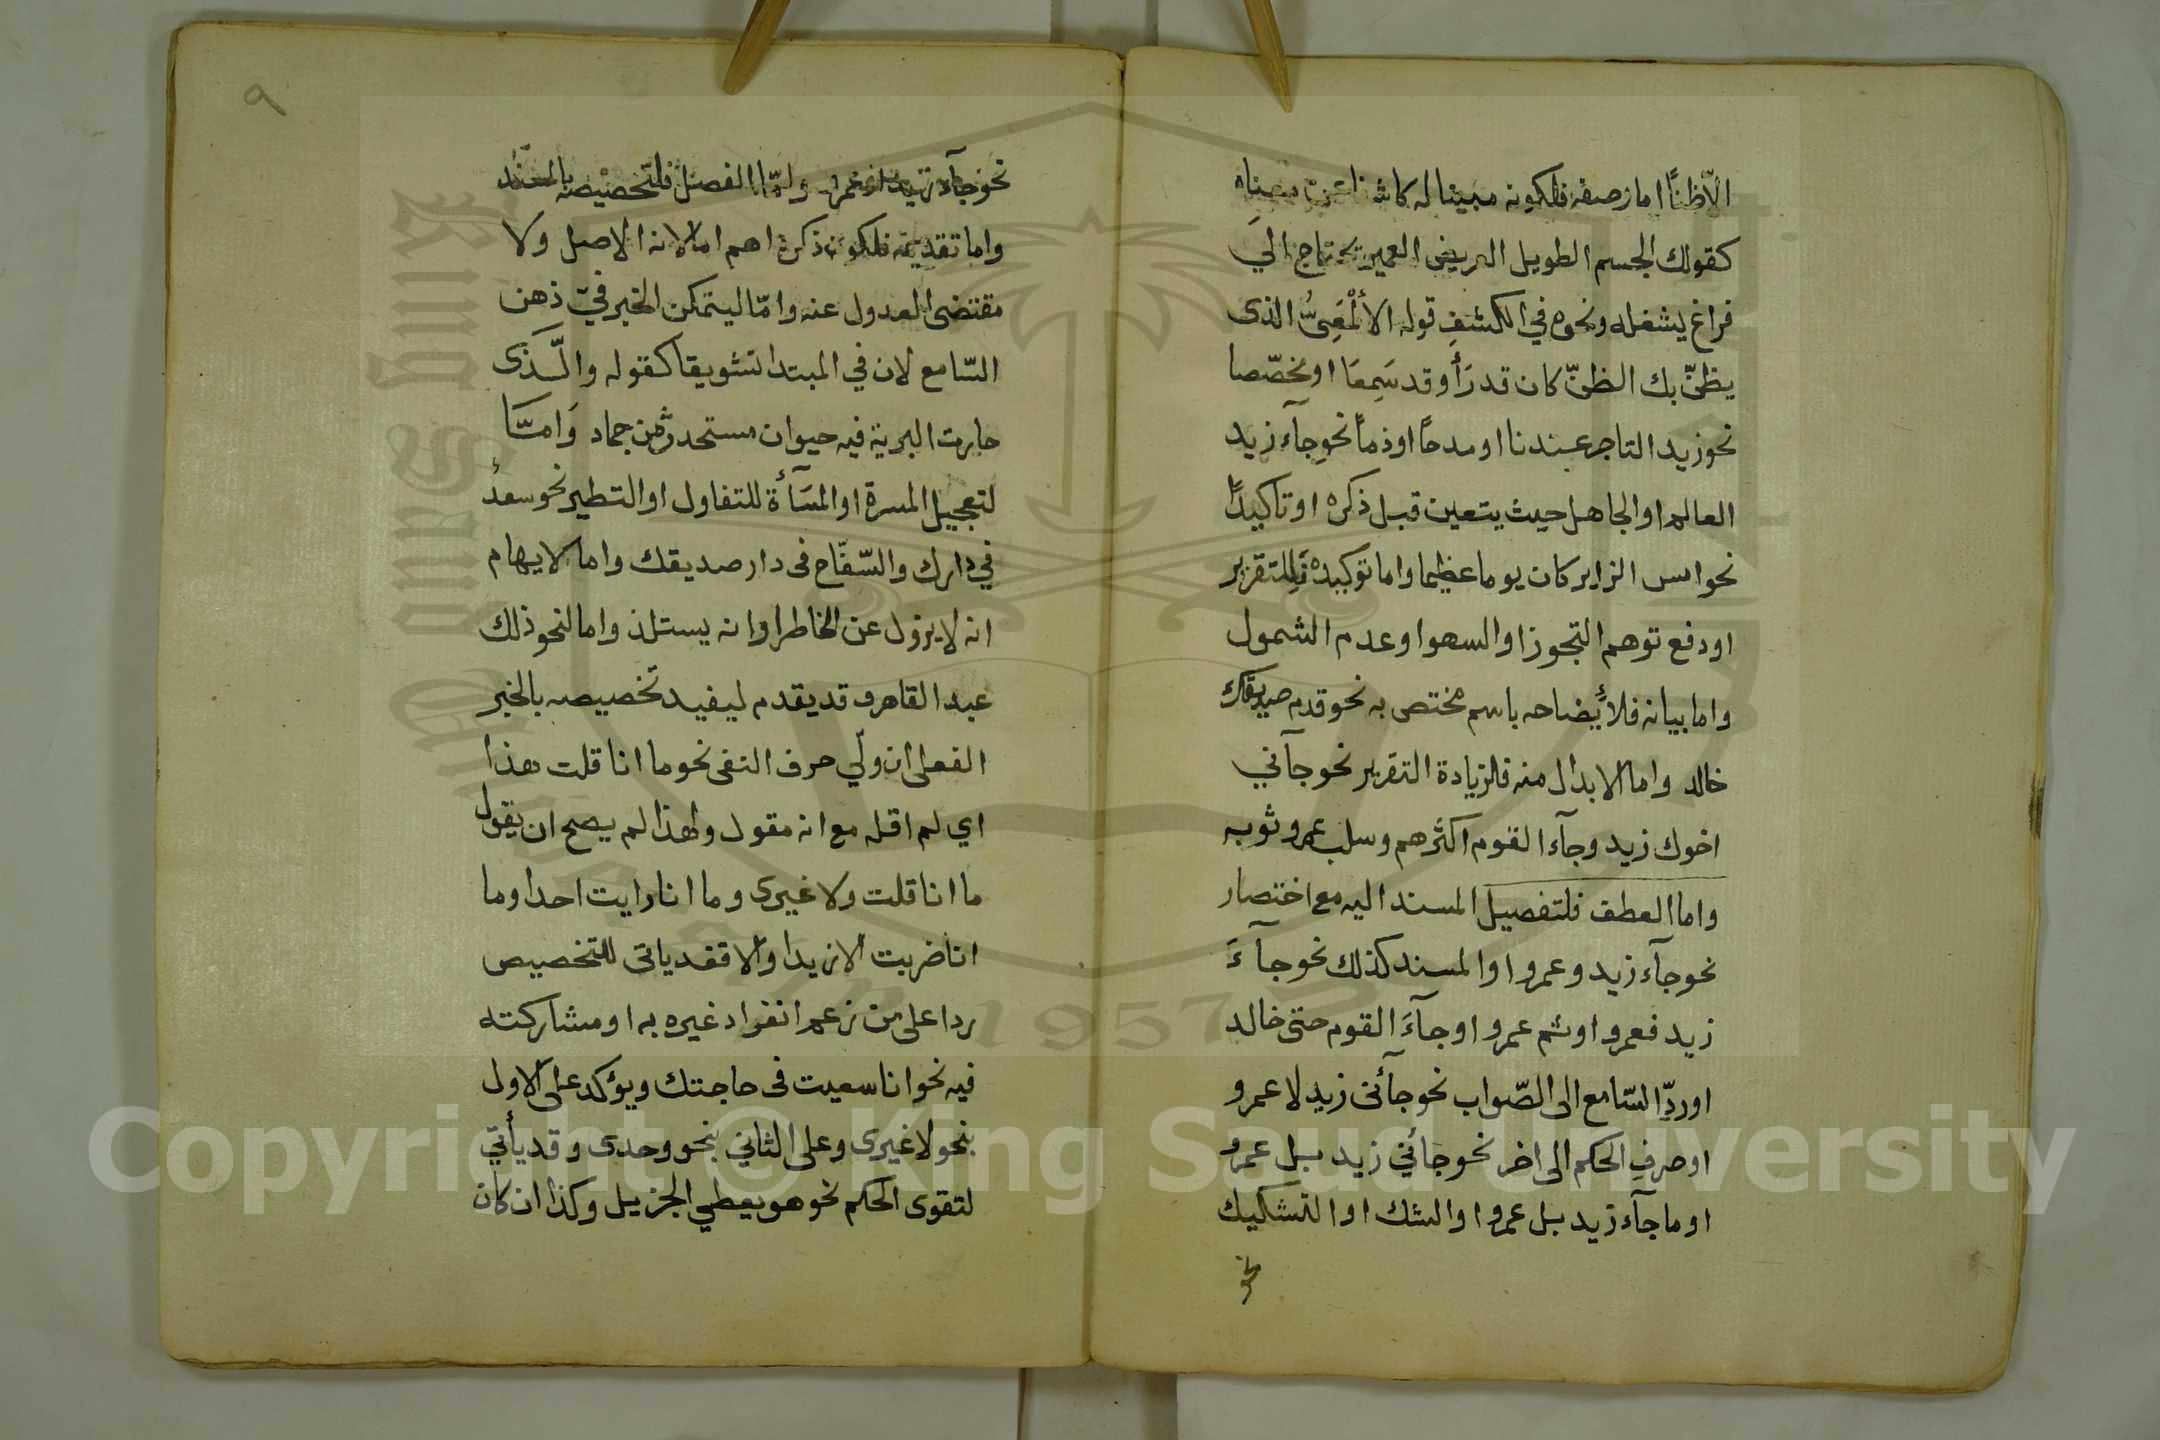 الاّ ظنًا اما وصفه فلكونه مبينا له كاشفا عن معناه
كقولك الجسم الطويل العريض العميق يحتاج الي
فراغ يشغله ونحوه في الكشف قوله الألْمَعِىُّ الذى
يظنّ بك الظنّ كان قد رَأى وقد سَمِعَا او مخصّصا
نحو زيد التاجر عندنا او مدحًا او ذمًا نحو جآء زيد
العالم او الجاهل حيث يتعين قبل ذكره او تاكيدًا
نحو امس الزاير كان يوما عظيما واما توكيده فللتقرير
او دفع توهم التجوز او السهو او عدم الشمول
واما بيانه فلأيضاحه باسم مختص به نحو قدم صديقك
خالد واما الابدال منه فلزيادة التقرير نحو جآني
اخوك زيد وجآء القوم اكثرهم وسلب عمرو ثوبه
واما العطف فلتفصيل المسند اليه مع اختصار
نحو جآء زيد وعمرو او المسند كذلك نحو جآءَ
زيد فعمرو او ثم عمرو او جآءَ القوم حتى خالد
او ردِّ السّامع الى الصّواب نحو جآئنى زيد لا عمرو
او صرف الحكم الى اخر نحو جائني زيد بل عمرو
او ما جآء زيد بل عمرو او الشك او التشكيك
نحو
٩
نحو جآء زيد او عمرو وامّا الفصل فلتخصيصه بالمسند
واما تقديمه فلكون ذكره اهم اما لانه الاصل ولا
مقتضى للعدول عنه وامّا ليتمكن الخبر في ذهن
السّامع لان في المبتدا تشويقا كقوله والَّذى
حارت البرية فيه حيوان مستحدث من جماد وَامَّا
لتعجيل المسرة او المسَآءَة للتفاول او التطير نحو سعدٌ
في دارك والسّفّاح فى دار صديقك واما لايهام
انه لا يزول عن الخاطر او انه يستلذ واما لنحو ذلك
عبد القاهر وقد يقدم ليفيد تخصيصه بالخبر
الفعلى ان ولّي حرف النفى نحو ما انا قلت هذا
اي لم اقله مع انه مقول ولهذا لم يصح ان يقول
ما انا قلت ولا غيرى وما انا رايت احدا وما
انا ضربت الا زيدا والا فقد ياتى للتخصيص
ردا على من زعم انفراد غيره به او مشاركته
فيه نحو انا سعيت فى حاجتك ويؤكد على الاول
بنحو لا غيرى وعلى الثاني بنحو وحدى وقد يأتي
لتقوى الحكم نحو هو يعطي الجزيل وكذا ان كان
1957
Copyright © King Saud University